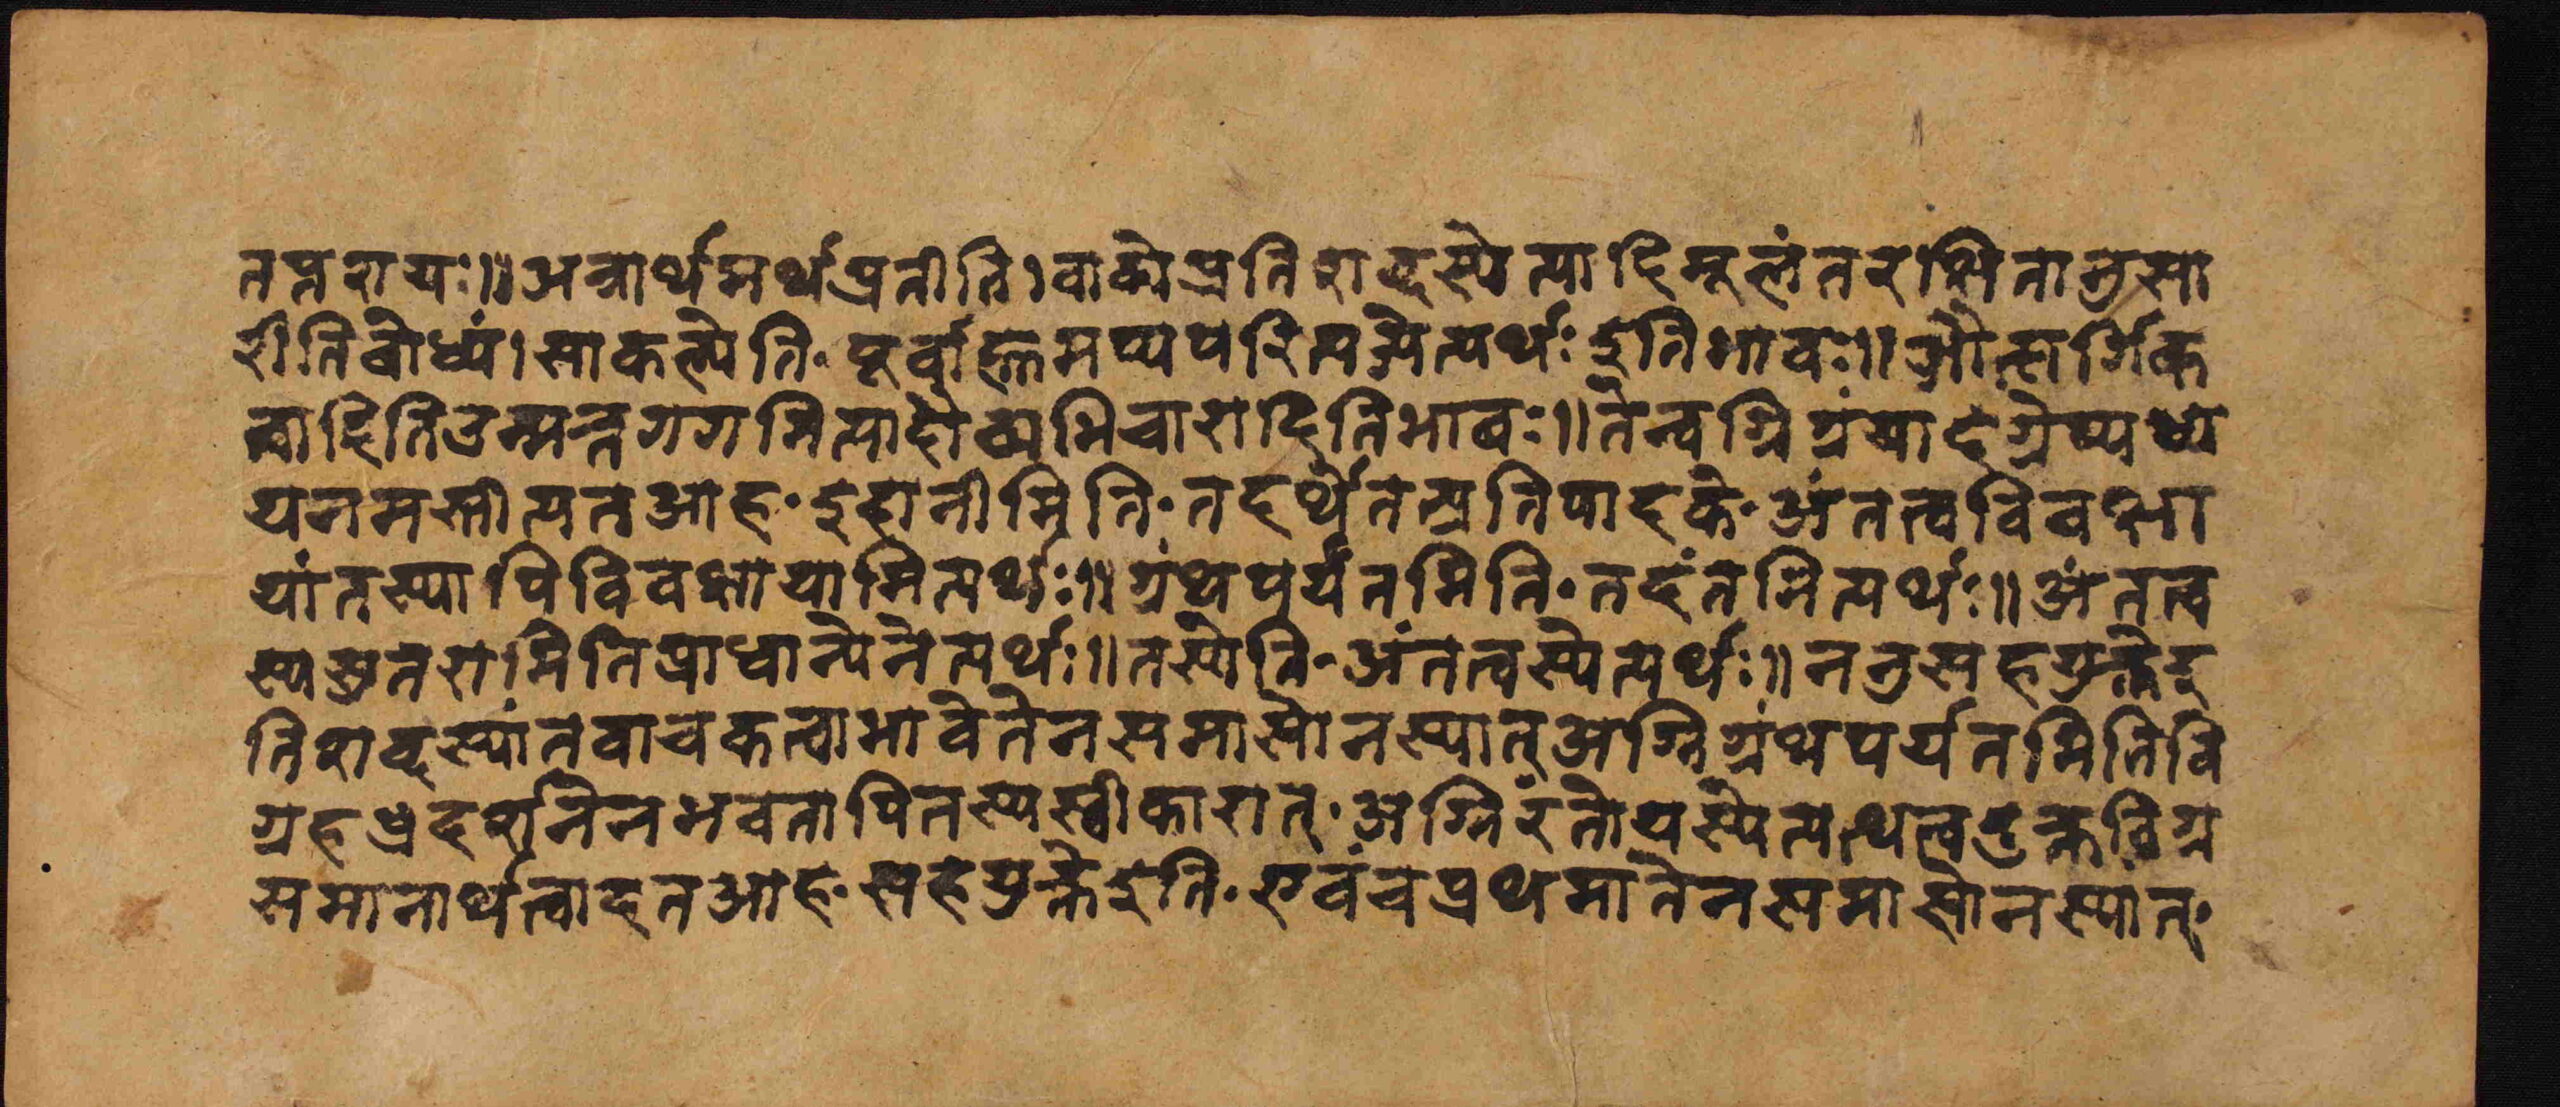 तत्तरायः॥ अत्रार्थमर्थंप्रतीति। वाक्येप्रतिशब्दस्येत्यादिमूलंतदभिमतानुसा
रीतिबोध्यं। साकल्येति॰ पूर्वाह्णमप्यपरित्यज्येत्यर्थः इतिभावः॥ औत्सर्गिक
त्वादितिउन्मत्तगंगमित्यादौव्यभिचारादितिभावः॥ तेन्वग्निग्रंथादग्रेप्यध्य
यनमस्तीत्यतआह॰ इदानीमिति॰ तदर्थेतत्प्रतिपादके॰ अंतत्वविवक्षा
यांतस्यापिविवक्षायामित्यर्थः॥ ग्रंथपर्यंतमिति॰ तदंतमित्यर्थः॥ अंतत्व
स्यसुतरामितिप्राधान्येनेत्यर्थः॥ तस्येति॰ अंतत्वस्येत्यर्थः॥ ननुसहयुक्तेइ
तिशब्दस्यांतवाचकत्वाभावेतेनसमासोनस्यात् अग्निग्रंथपर्यंतमितिवि
ग्रहप्रदर्शनेनभवतापितस्यस्वीकारात्॰ अग्निरंतोयस्येत्यत्थत्वदुक्तविग्र
समानार्थत्वादतआह॰ सहयुक्तेइति॰ एवंचप्रथमांतेनसमासोनस्यात्॰